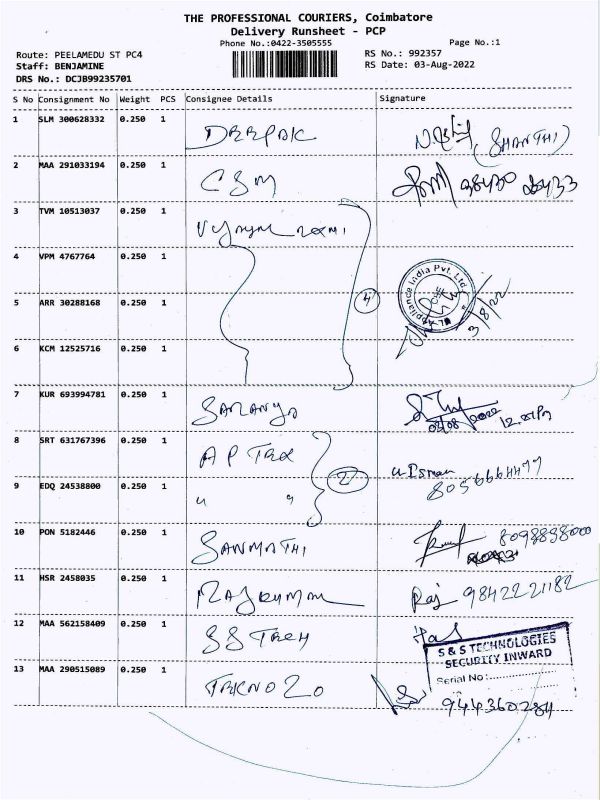 THE PROFESSIONAL COURIERS, Coimbatore
Delivery Runsheet - PCP
Phone No.:0422-3505555 Page No.:1
Route: PEELAMEDU ST PC4 RS No.: 992357
Staff: BENJAMINE RS Date: 03-Aug-2022
DRS No.: DCJB99235701
S No Consignment No Weight PCS Consignee Details Signature
1 SLM 300628332 0.250 1 DEEPAK (SHANTHI)
2 MAA 291033194 0.250 1 CSM 98430
3 TVM 10513037 0.250 1
4 VPM 4767764 0.250 1
5 ARR 30288168 0.250 1 4 Appliance India Pvt. Ltd. 3/8/22
6 KCM 12525716 0.250 1
7 KUR 693994781 0.250 1 SARANYA 03/08/2022
8 SRT 631767396 0.250 1 A P TEX
9 EDQ 24538800 0.250 1 " " 2 8056664477
10 PON 5182446 0.250 1 SANMATHI 8098898000
11 HSR 2458035 0.250 1 RAJKUMAR Raj 9842221182
12 MAA 562158409 0.250 1 SS TECH
S & S TECHNOLOGIES
SECURITY INWARD
Serial No:
13 MAA 290515089 0.250 1 TEKNO 20 9444360284